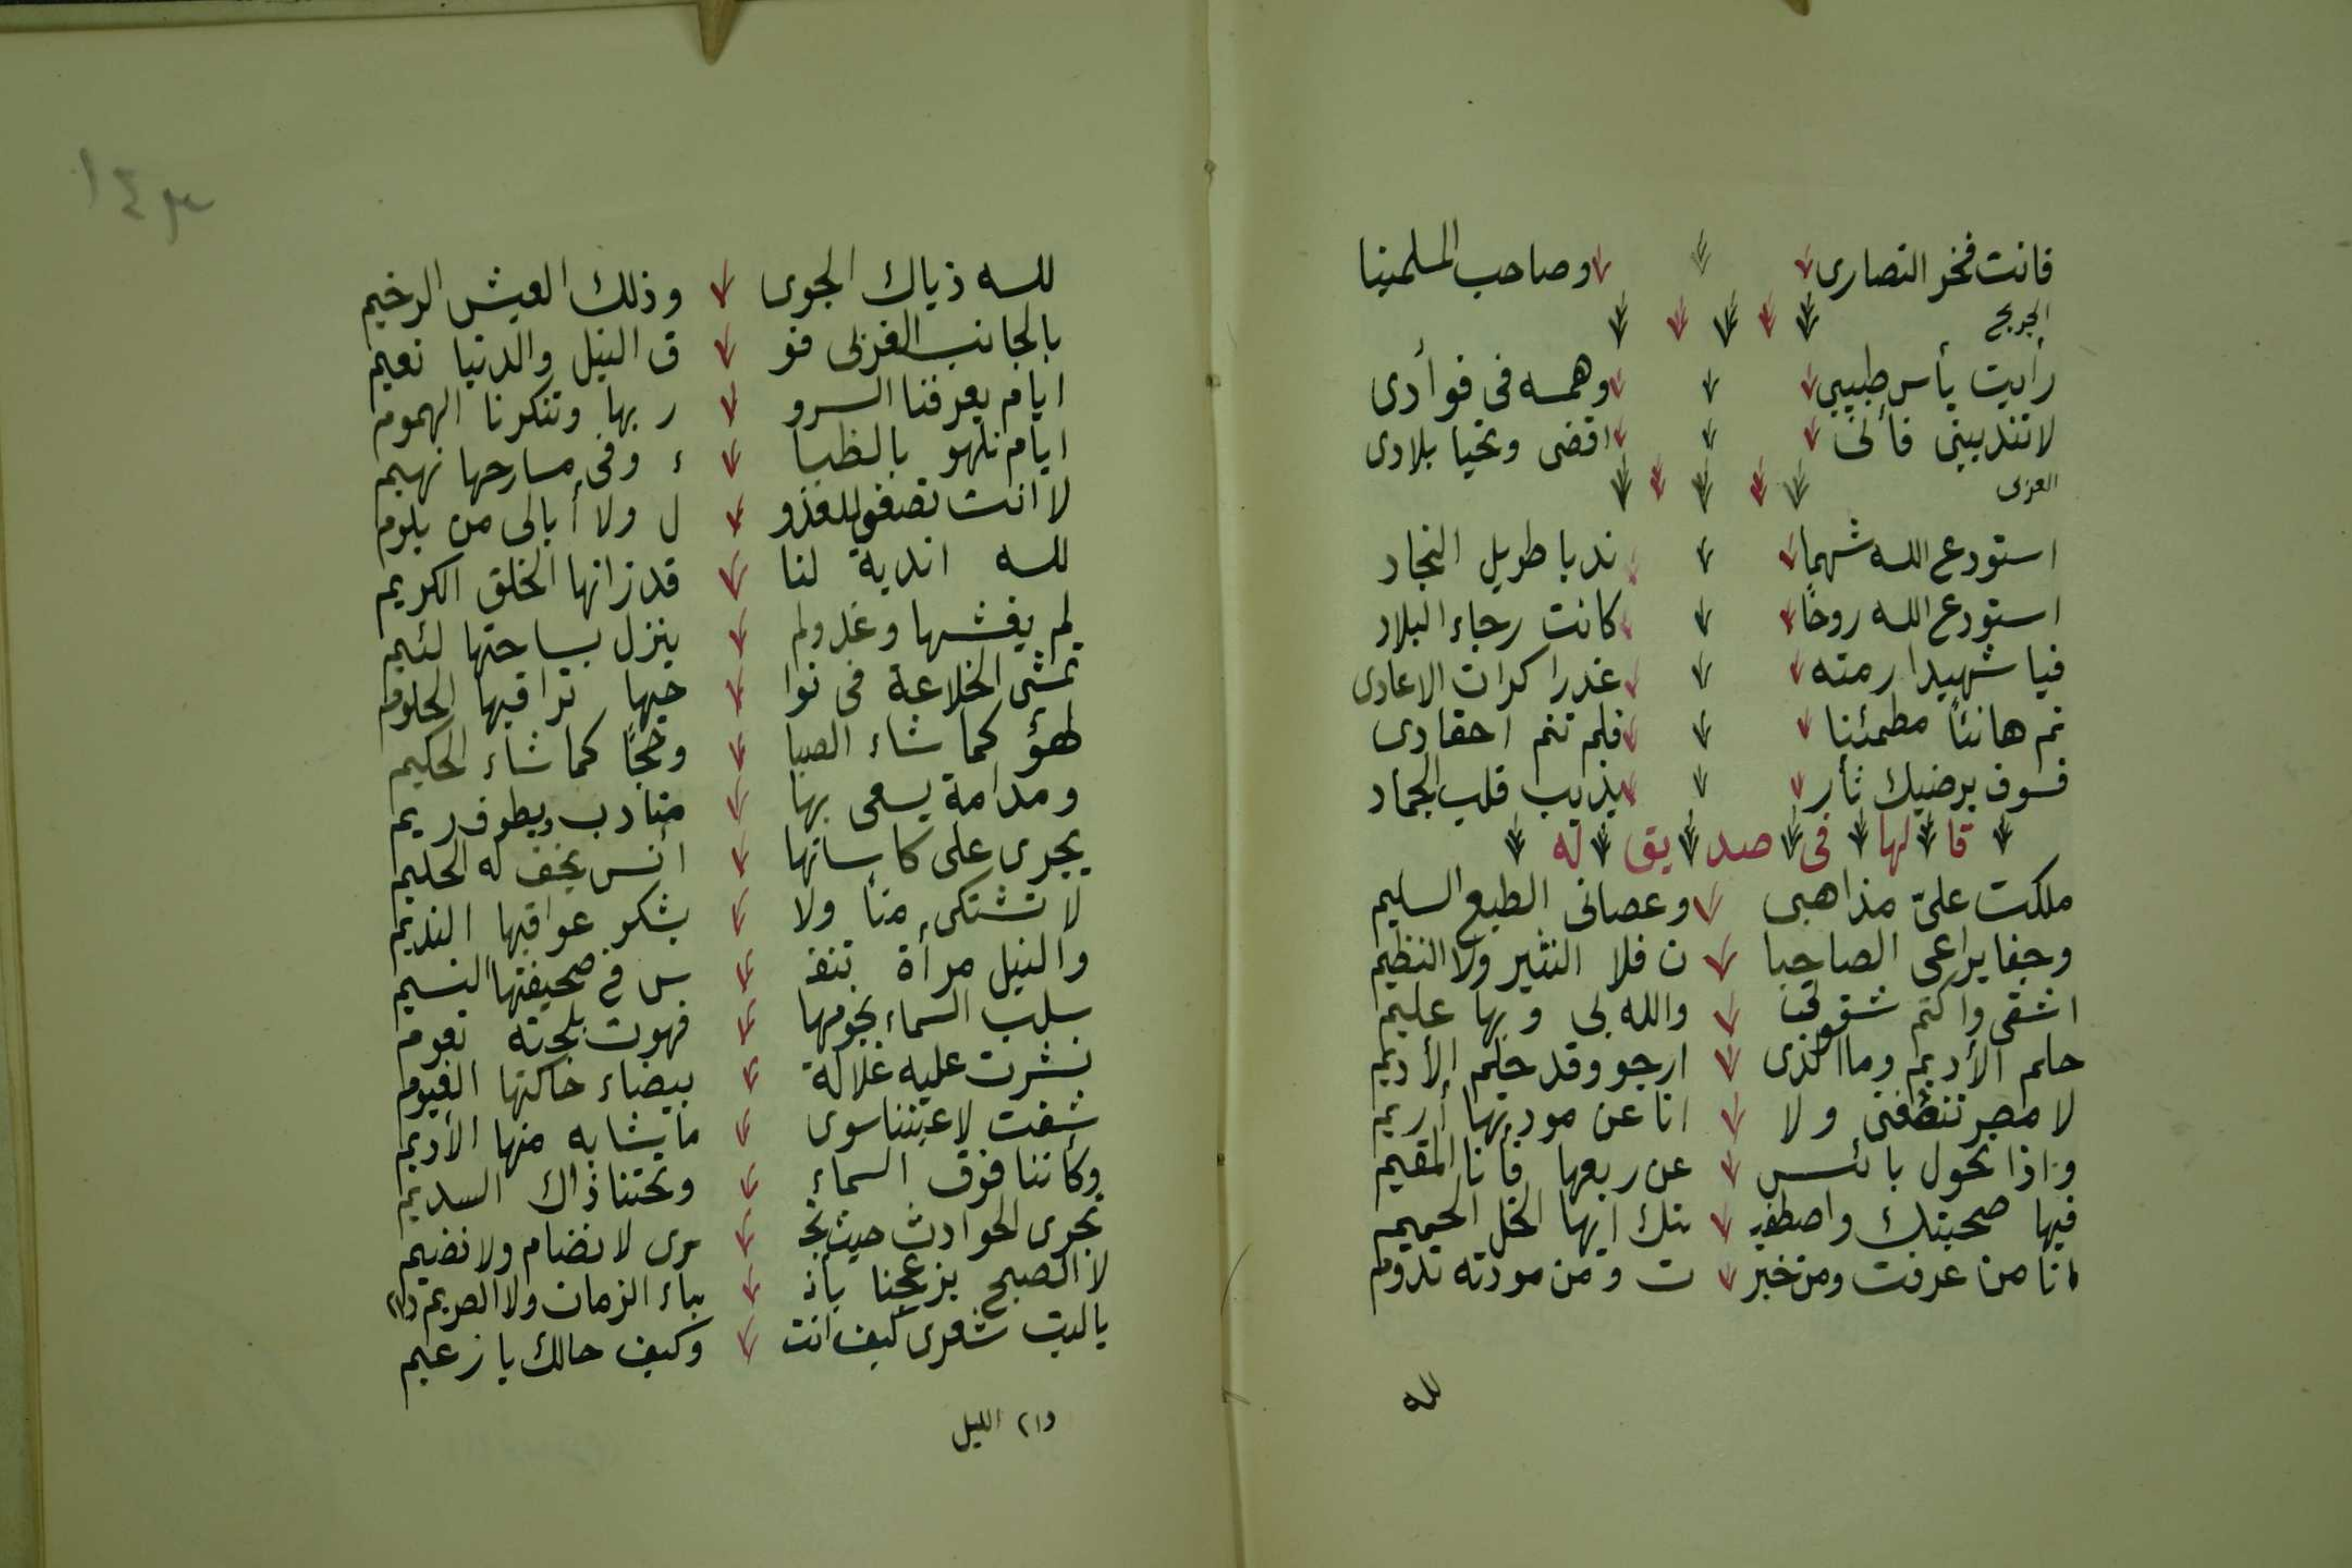 فانت فخر النصارى وصاحب المسلمينا
الجريح
رأيت يأس طبيبى وهمسه فى فوأدى
لا تندبينى فأنى اقضى وتحيا بلادى
العربى
استودع الله شهماً ندبا طويل النجاد
استودع الله روحًا كانت رجاء البلاد
فيا شهيدا رمته غدرا كرات الاعادى
نم هانئاً مطمئنا فلم تنم احقادى
فسوف يرضيك ثأر يذيب قلب الجماد
قالها فى صديق له
ملكت علىّ مذاهبى وعصانى الطبع السليم
وجفا يراعى الصاحبا ن فلا النثير ولا النظيم
اشقى واكتم شقوتى والله بى وبها عليم
حلم الأديم وما الذى ارجو وقد حلم الأديم
لا مصر تنصفنى ولا انا عن مودتها أريم
واذا تحول بائس عن ربعها فأنا المقيم
فيها صحبتك واصطفيـ ـتك ايها الخل الحميم
انا من عرفت ومن خبر ت ومن مودته تدوم
لله
١٤٣
لله ذياك الجوى وذلك العيش الرخيم
بالجانب الغربى فو ق النيل والدنيا نعيم
ايام يعرفنا السرو ر بها وتنكرنا الهموم
ايام نلهو بالظبا ء وفى مسارحها نهيم
لا انت تصفى للعذو ل ولا أبالى من يلوم
لله اندية لنا قد زانها الخلق الكريم
لم يغشها وغد ولم ينزل بساحتها لئيم
تمشى الخلاعة فى نوا حيها تراقبها الحلوم
لهؤ كما شاء الصبا وحجًا كما شاء الحكيم
ومدامة يسعى بها متادب ويطوف ريم
يجرى على كاساتها أنس يخف له الحليم
لا تشتكى منا ولا يشكو عواقبها النديم
والنيل مرأة تنفـ ـس فى صحيفتها النسيم
سلب السماء نجومها فهوت بلجته تعوم
نشرت عليه غلالة بيضاء حاكتها الغيوم
شفت لاعيننا سوى ما يشابه منها الأديم
وكأننا فوق السماء وتحتنا ذاك السديم
تجرى الحوادث حيث تجـ ـرى لا نضام ولا نضيم
لا الصبح يزعجنا بأنـ ـباء الزمان ولا الصريم (١)
ياليت شعرى كيف انت وكيف حالك يا زعيم
(١) الليل